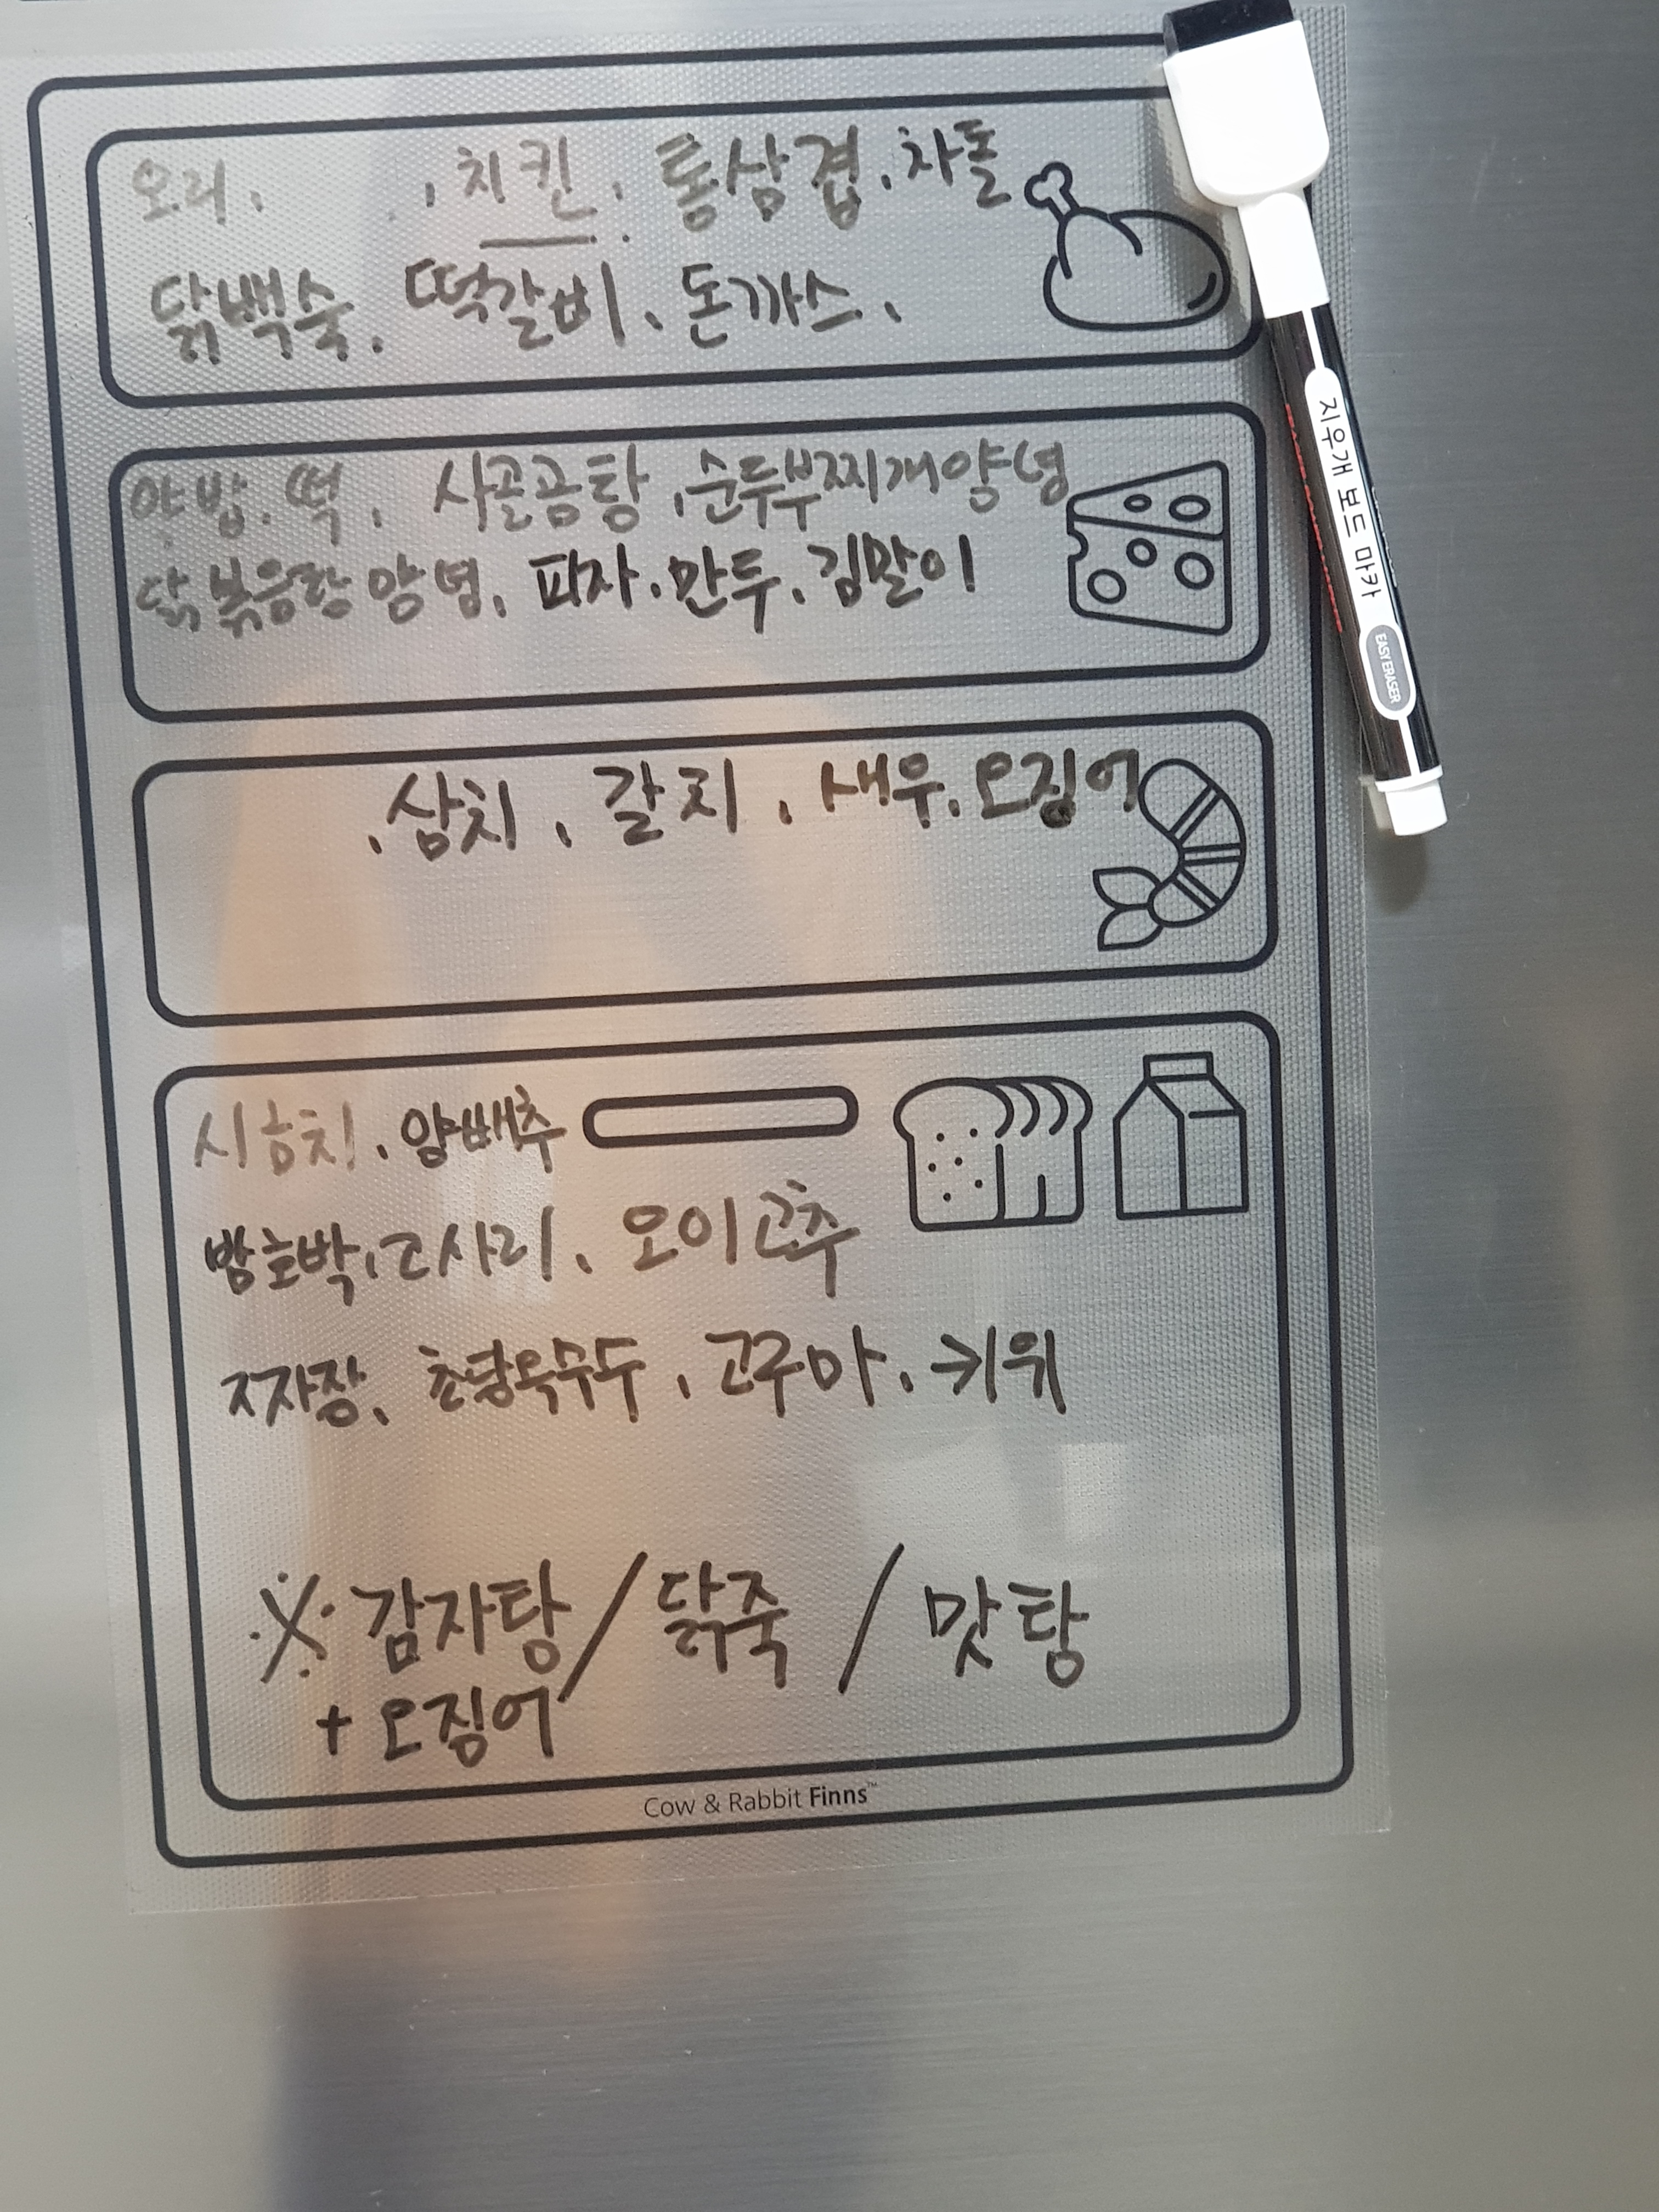 오리. , 치킨. 통삼겹. 차돌
닭백숙. 떡갈비. 돈까스.
약밥. 떡. 사골곰탕. 순두부찌개양념
닭볶음탕양념. 피자. 만두. 김말이
. 삼치. 갈치. 새우. 오징어
양배추
밤호박. 고사리. 오이고추
짜장. 초당옥수수. 고구마. 키위
※ 감자탕 / 닭죽 / 맛탕
+ 오징어
Cow & Rabbit Finns™
지우개 보드 마카
EASY ERASER